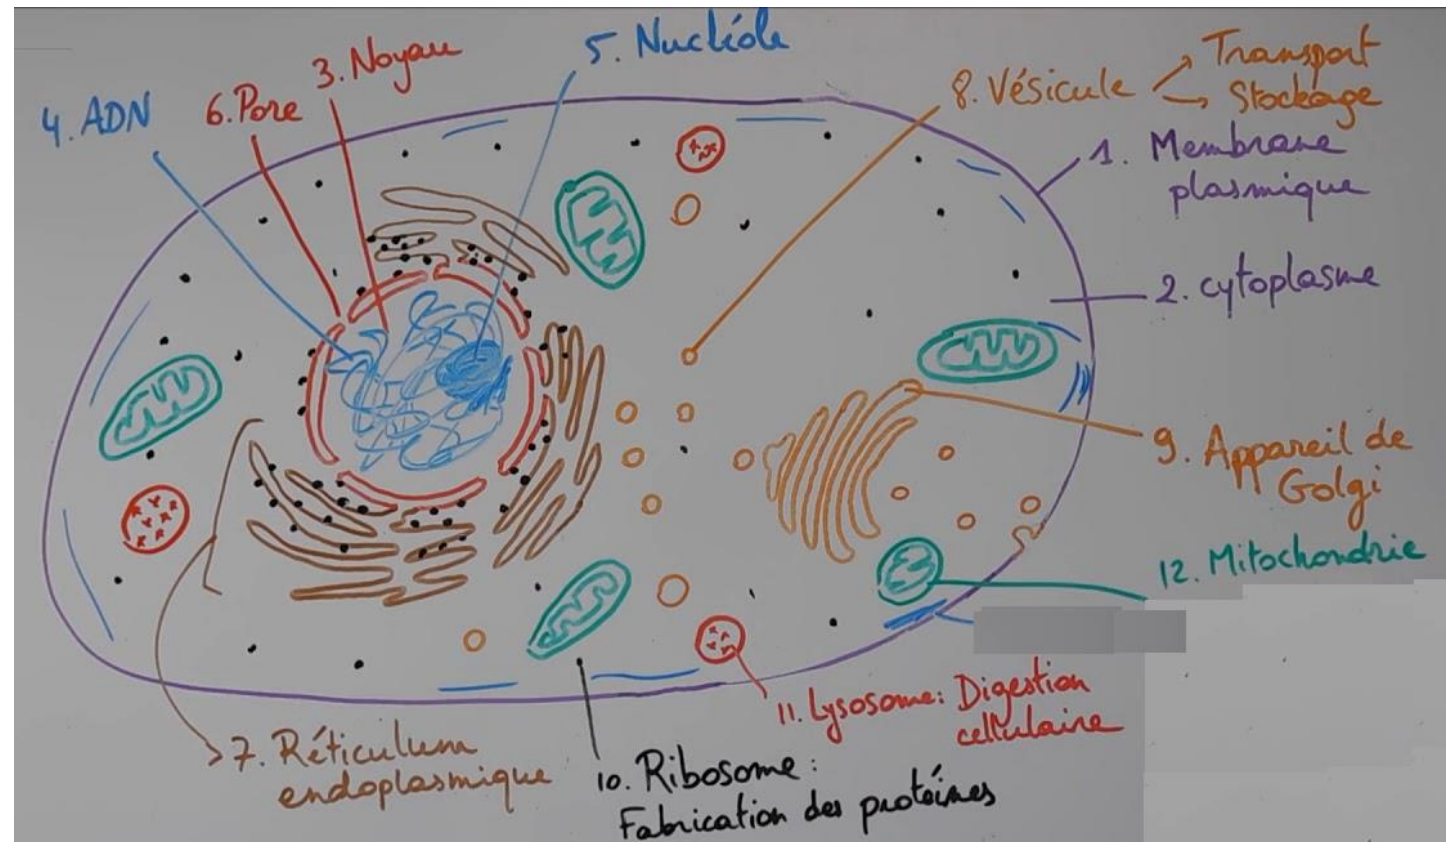 4. ADN
6. Pore
3. Noyau
5. Nucléole
8. Vésicule
Transport
Stockage
1. Membrane
plasmique
2. cytoplasme
9. Appareil de
Golgi
12. Mitochondrie
11. Lysosome: Digestion
cellulaire
10. Ribosome:
Fabrication des protéines
7. Réticulum
endoplasmique